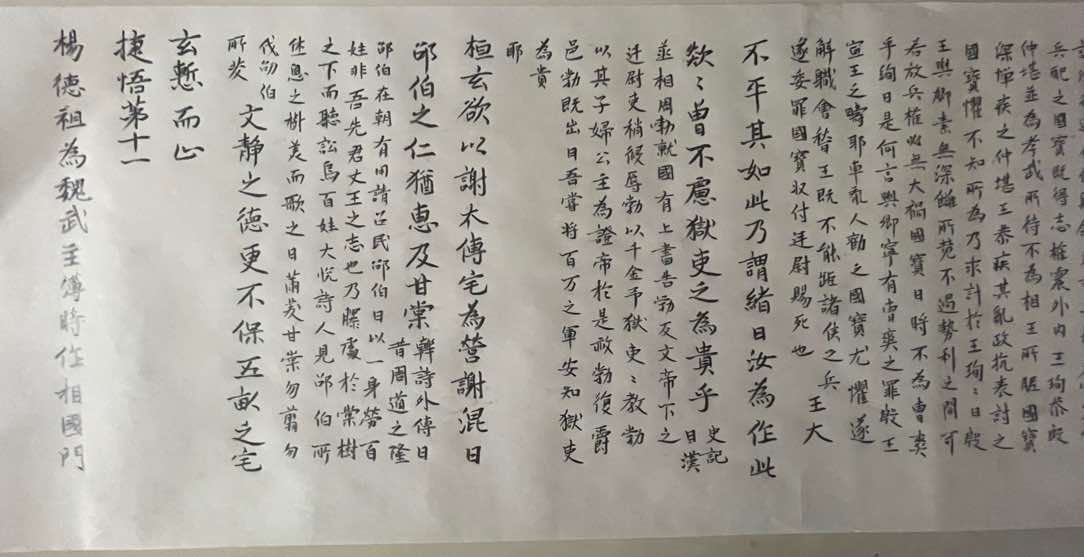 兵配之國寶既得志權震外內王珣恭殷
仲堪並為孝武所待不為相王所眤國寶
深憚疾之仲堪王恭疾其亂政抗表討之
國寶懼不知所為乃求計於王珣〻曰殷
王與卿素無深讎所競不過勢利之間耳
若放兵權必無大禍國寶曰時不為曹爽
乎珣曰是何言與卿寧有曹爽之罪殷王
宣王之疇耶車胤人勸之國寶尤懼遂
解職會稽王既不能距諸侯之兵
遂委罪國寶収付廷尉賜死也
王大
不平其如此乃謂緒曰汝為作此
欻〻曽不慮獄吏之為貴乎
史記
曰漢
並相周勃就國有上書告勃反文帝下之
廷尉吏稍侵辱勃以千金予獄吏〻教勃
以其子婦公主為證帝於是赦勃復爵
邑勃既出曰吾嘗將百万之軍安知獄吏
為貴
耶
桓玄欲以謝太傅宅為營謝混曰
邵伯之仁猶惠及甘棠
韓詩外傳曰
昔周道之隆
邵伯在朝有司請召民邵伯曰以一身勞百
姓非吾先君文王之志也乃暴處於棠樹
之下而聽訟焉百姓大悅詩人見邵伯所
休息之樹美而歌之曰蔽芾甘棠勿翦勿
伐邵伯
所茇
文靜之德更不保五畝之宅
玄慙而止
捷悟第十一
楊德祖為魏武主簿時作相國門